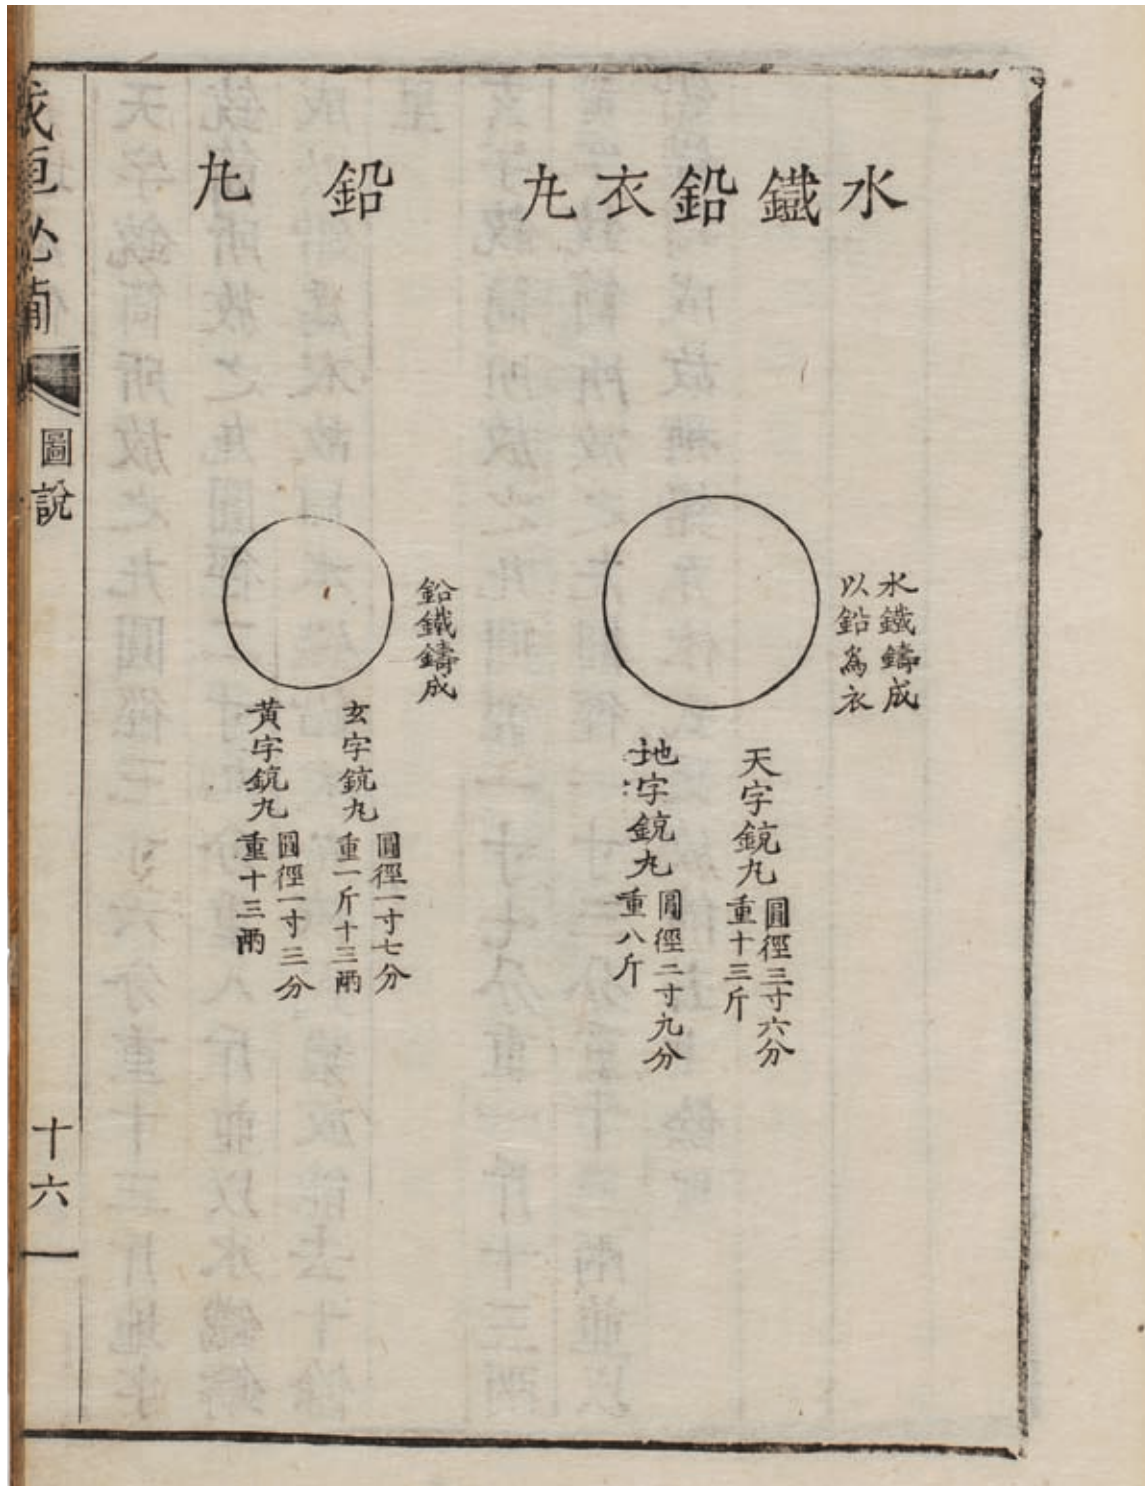 水鐵鉛衣丸
水鐵鑄成
以鉛爲衣
天字銃丸
圓徑三寸六分
重十三斤
地字銃丸
圓徑二寸九分
重八斤
鉛丸
鉛鐵鑄成
玄字銃丸
圓徑一寸七分
重一斤十三兩
黃字銃丸
圓徑一寸三分
重十三兩
戎垣必備
圖說
十六